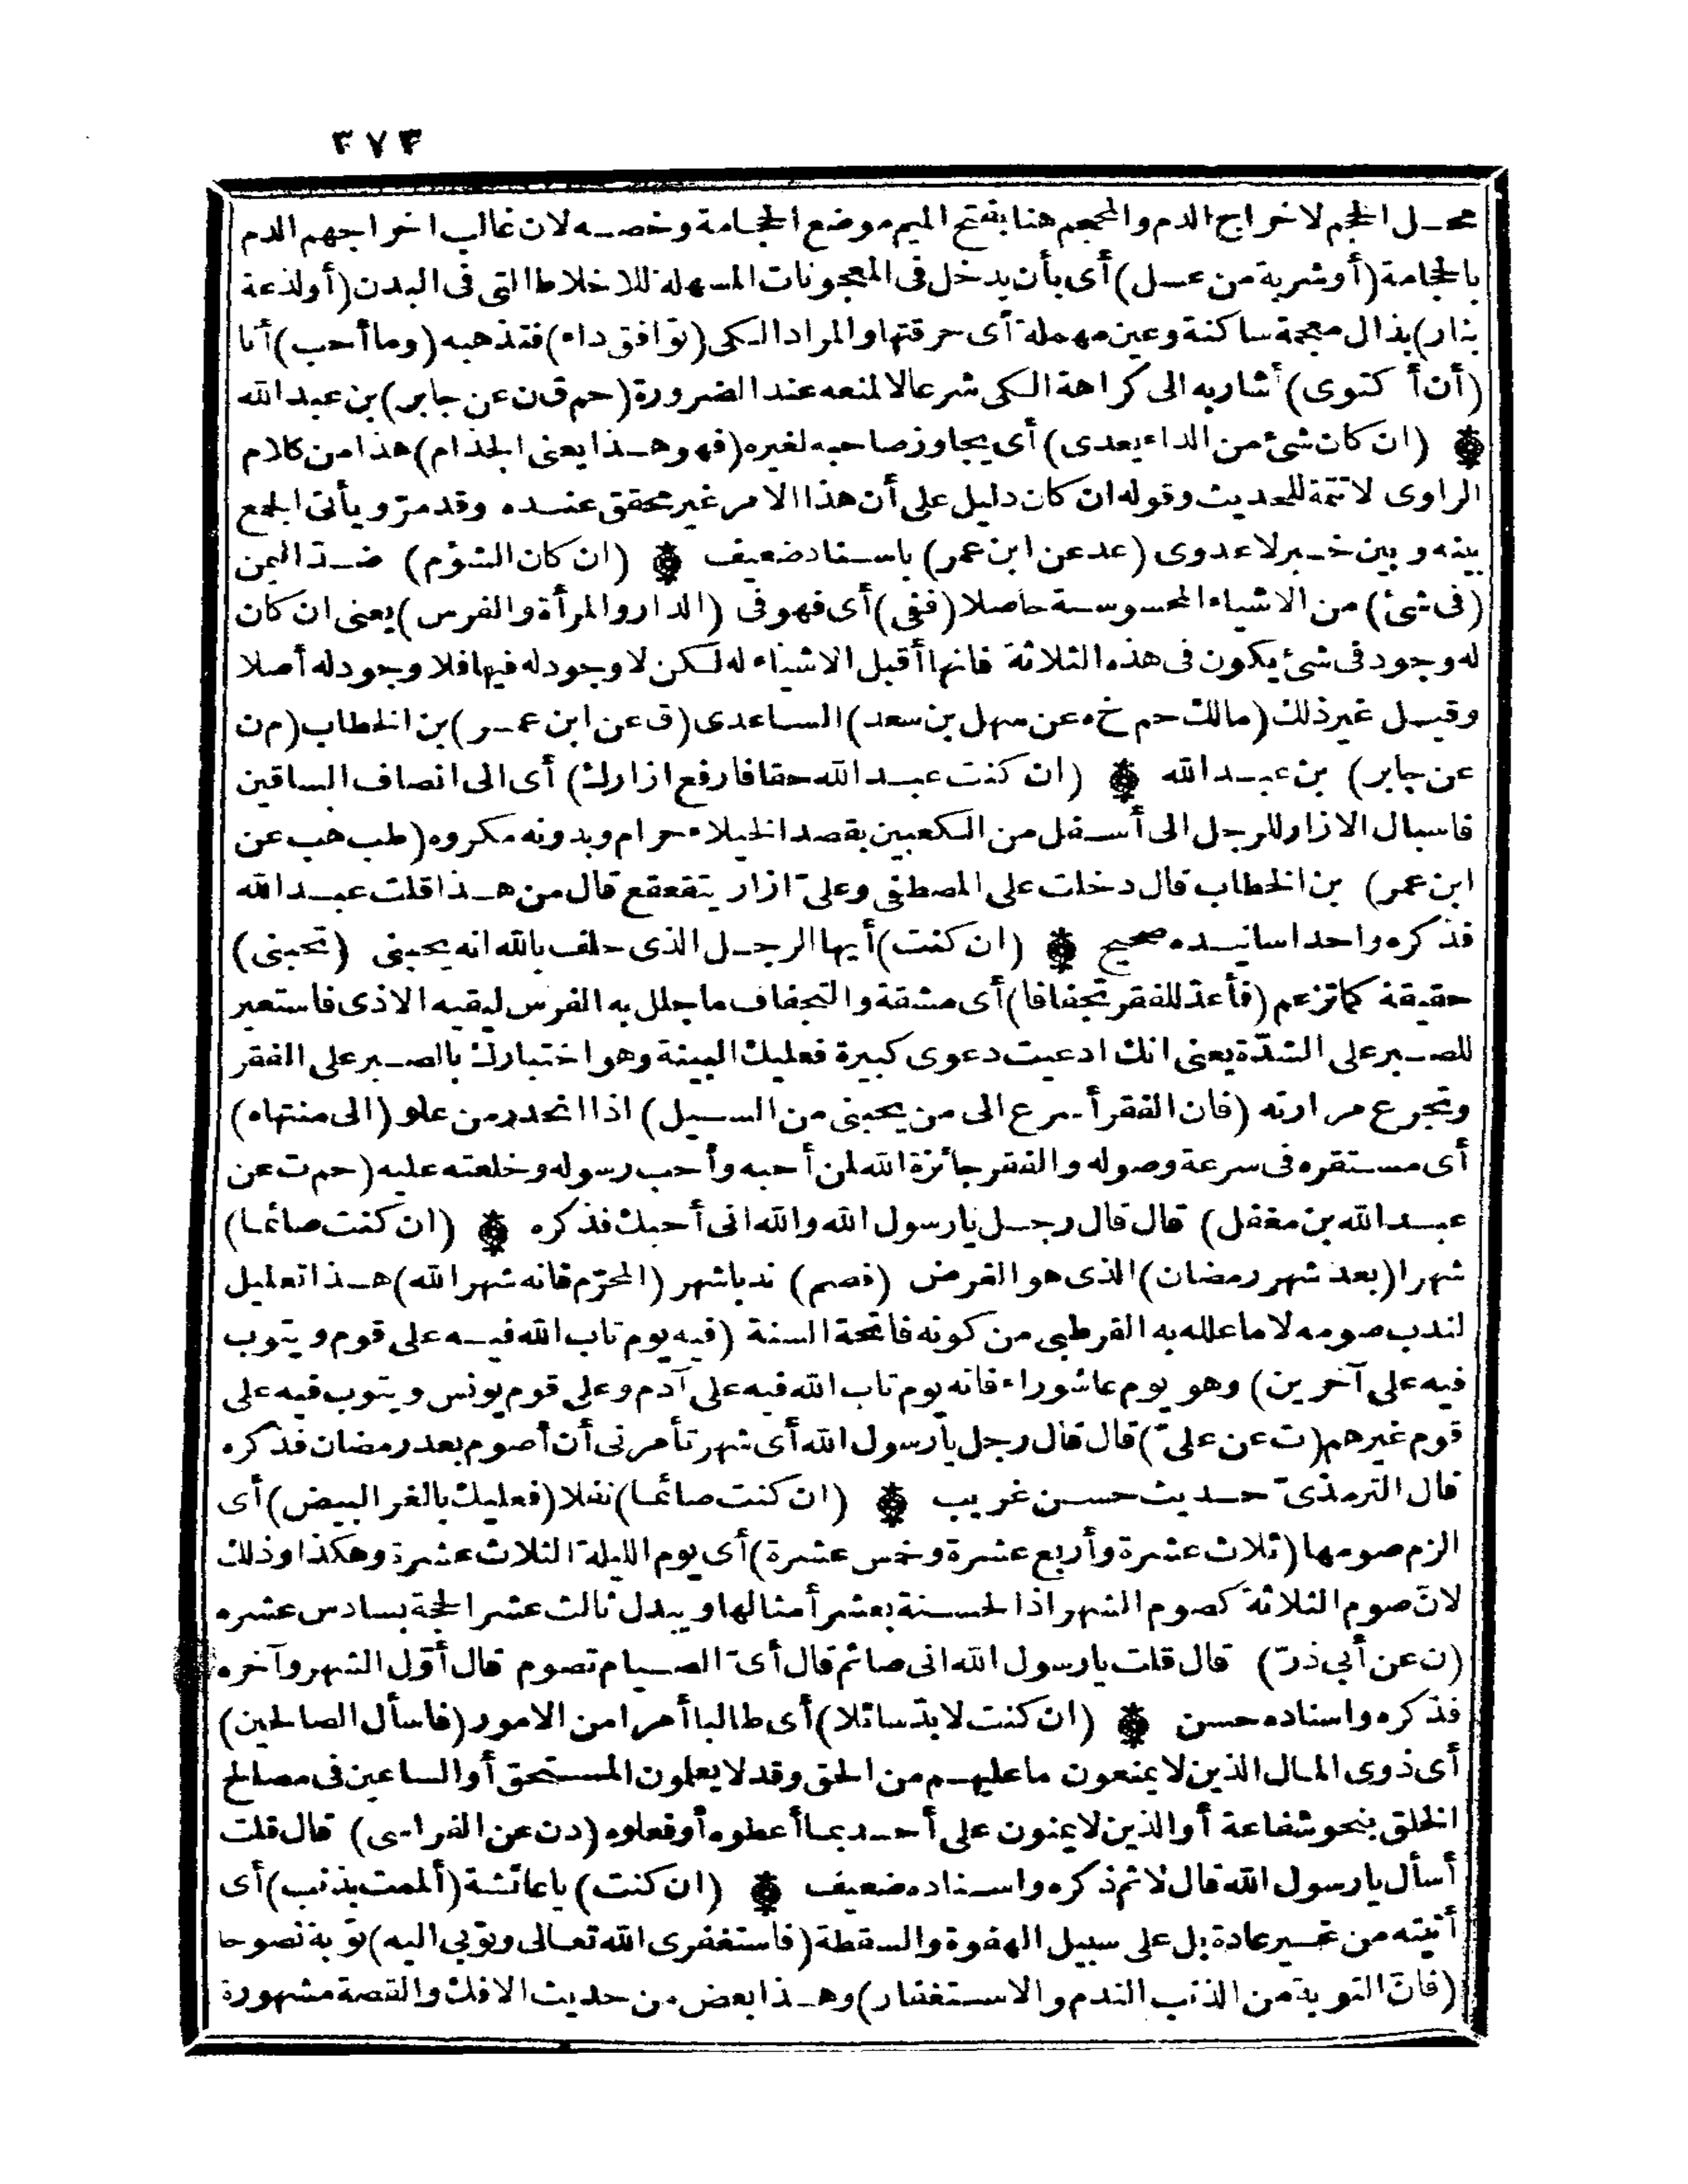 ٣٧٣
محل الحجم لاخراج الدم والمحجم هنا بفتح الميم موضع الحجامة وخصه لان غالب اخراجهم الدم
بالحجامة (أو شربة من عسل) أى بأن يدخل فى المعجونات المسهلة للاخلاط التى فى البدن (أو لذعة
بنار) بذال معجمة ساكنة وعين مهملة أى حرقتها والمراد الكى (توافق داء) فتذهبه (وما أحب) أنا
(أن أكتوى) أشار به الى كراهة الكى شرعا لا لمنعه عند الضرورة (حم ق ن عن جابر) بن عبد الله
(ان كان شئ من الداء يعدى) أى يجاوز صاحبه لغيره (فهو هذا يعنى الجذام) هذا من كلام
الراوى لا تتمة للحديث وقوله ان كان دليل على أن هذا الامر غير محقق عنده وقد مرّ ويأتى الجمع
بينه وبين خبر لا عدوى (عد عن ابن عمر) باسناد ضعيف (ان كان الشؤم) ضدّ اليمن
(فى شئ) من الاشياء المحسوسة حاصلا (ففى) أى فهو فى (الدار والمرأة والفرس) يعنى ان كان
له وجود فى شئ يكون فى هذه الثلاثة فانها أقبل الاشياء له لكن لا وجود له فيها فلا وجود له أصلا
وقيل غير ذلك (مالك حم خ ه عن سهل بن سعد) الساعدى (ق عن ابن عمر) بن الخطاب (م ن
عن جابر) بن عبد الله (ان كنت عبد الله حقا فارفع ازارك) أى الى انصاف الساقين
فاسبال الازار للرجل الى أسفل من الكعبين بقصد الخيلاء حرام وبدونه مكروه (طب هب عن
ابن عمر) بن الخطاب قال دخلت على المصطفى وعلىّ ازار يتقعقع قال من هذا قلت عبد الله
فذكره واحد اسانيده صحيح (ان كنت) أيها الرجل الذى حلف بالله انه يحبنى (تحبنى)
حقيقة كما تزعم (فأعدّ للفقر تجفافا) أى مشقة والتجفاف ما جلل به الفرس ليقيه الاذى فاستعير
للصبر على الشدّة يعنى انك ادعيت دعوى كبيرة فعليك البينة وهو اختبارك بالصبر على الفقر
وتجرع مرارته (فان الفقر أسرع الى من يحبنى من السيل) اذا انحدر من علو (الى منتهاه)
أى مستقره فى سرعة وصوله والفقر جائزة الله لمن أحبه وأحب رسوله وخلعته عليه (حم ت عن
عبد الله بن مغفل) قال قال رجل يا رسول الله والله انى أحبك فذكره (ان كنت صائما)
شهرا (بعد شهر رمضان) الذى هو الفرض (فصم) ندبا شهر (المحرّم فانه شهر الله) هذا تعليل
لندب صومه لا ما علله به القرطبى من كونه فاتحة السنة (فيه يوم تاب الله فيه على قوم ويتوب
فيه على آخرين) وهو يوم عاشوراء فانه يوم تاب الله فيه على آدم وعلى قوم يونس ويتوب فيه على
قوم غيرهم (ت عن علىّ) قال قال رجل يا رسول الله أى شهر تأمرنى أن أصوم بعد رمضان فذكره
قال الترمذىّ حديث حسن غريب (ان كنت صائما) نفلا (فعليك بالغر البيض) أى
الزم صومها (ثلاث عشرة وأربع عشرة وخمس عشرة) أى يوم الليلة الثلاث عشرة وهكذا وذلك
لانّ صوم الثلاثة كصوم الشهر اذ الحسنة بعشر أمثالها ويبدل ثالث عشر الحجة بسادس عشره
(ن عن أبى ذرّ) قال قلت يا رسول الله انى صائم قال أىّ الصيام تصوم قال أوّل الشهر وآخره
فذكره واسناده حسن (ان كنت لا بدّ سائلا) أى طالبا أمرا من الامور (فاسأل الصالحين)
أى ذوى المال الذين لا يمنعون ما عليهم من الحق وقد لا يعلمون المستحق أو الساعين فى مصالح
الخلق بنحو شفاعة أو الذين لا يمنون على أحد بما أعطوه أو فعلوه (د ن عن الفراسى) قال قلت
أسأل يا رسول الله قال لا ثم ذكره واسناده ضعيف (ان كنت) يا عائشة (ألممت بذنب) أى
أتيته من غير عادة بل على سبيل الهفوة والسقطة (فاستغفرى الله تعالى وتوبى اليه) توبة نصوحا
(فانّ التوبة من الذنب الندم والاستغفار) وهذا بعض من حديث الافك والقصة مشهورة